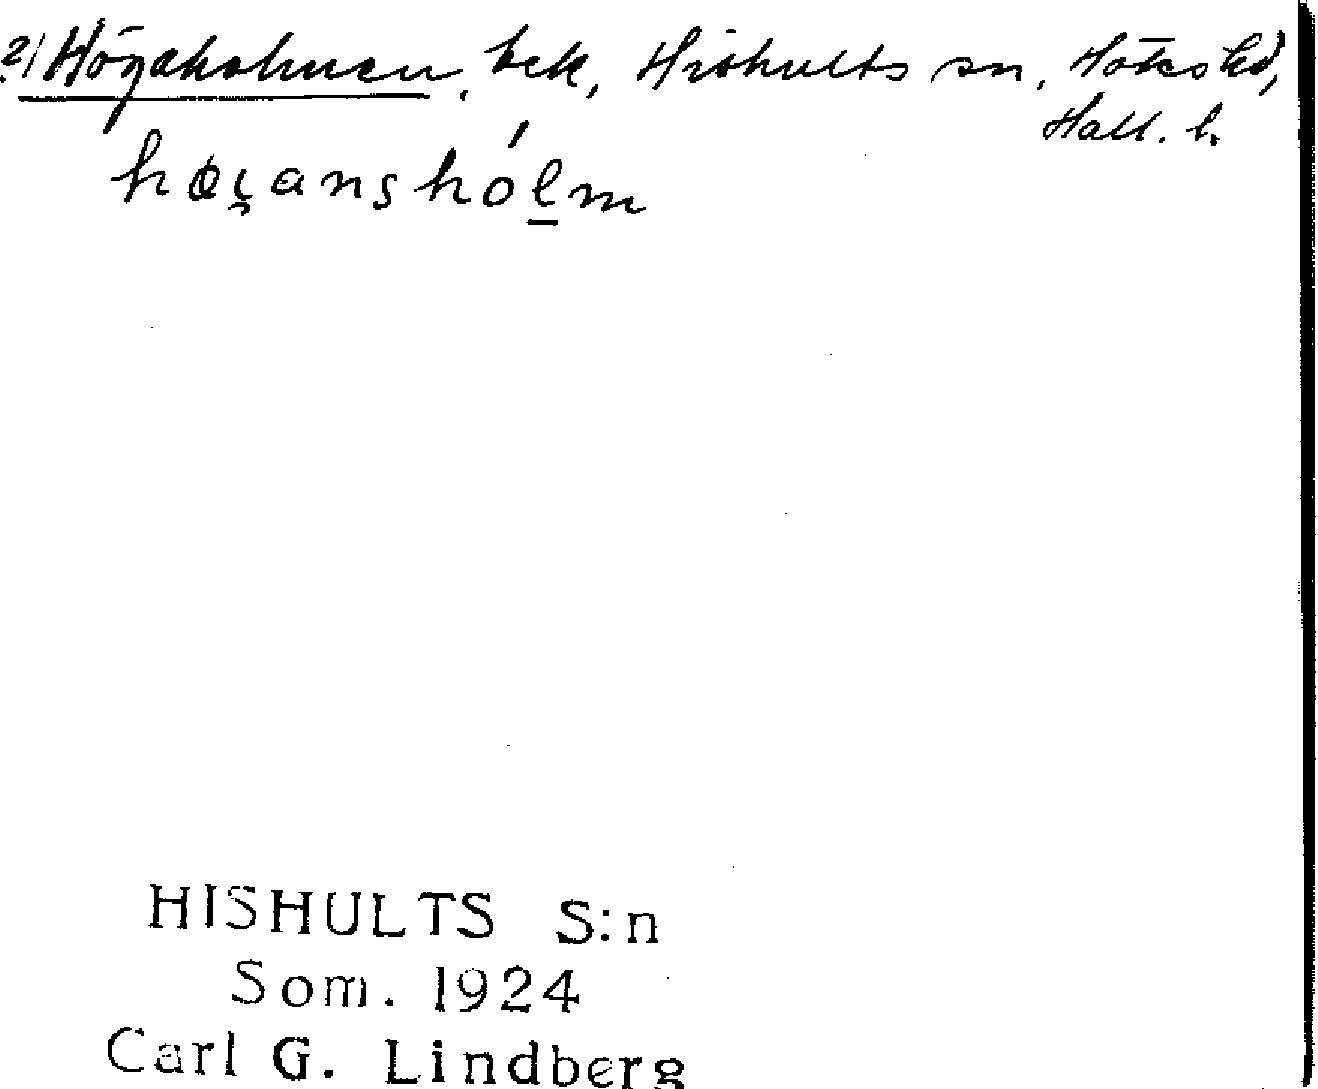 2) Högaholmen, bek, Hishults sn, Höks hd,
Hall. l.
høi̢anshólm
HISHULTS S:n
Som. 1924
Carl G. Lindberg